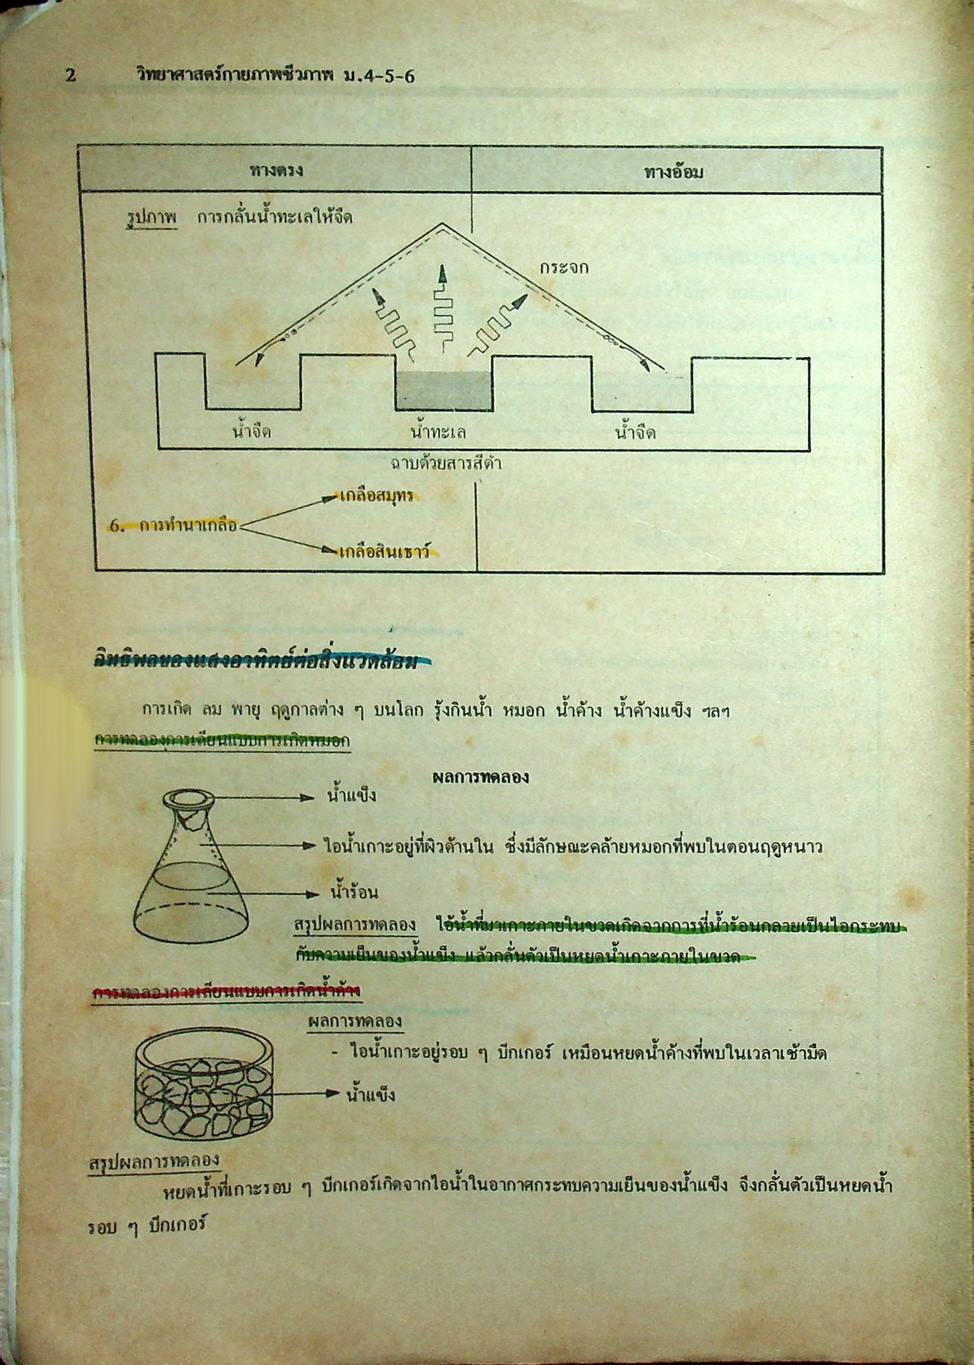 2 วิทยาศาสตร์กายภาพชีวภาพ ม.4-5-6
ทางตรง ทางอ้อม
รูปภาพ การกลั่นน้ำทะเลให้จืด
กระจก
น้ำจืด น้ำทะเล น้ำจืด
ฉาบด้วยสารสีดำ
เกลือสมุทร
6. การทำนาเกลือ
เกลือสินเธาว์
อิทธิพลของแสงอาทิตย์ต่อสิ่งแวดล้อม
การเกิด ลม พายุ ฤดูกาลต่าง ๆ บนโลก รุ้งกินน้ำ หมอก น้ำค้าง น้ำค้างแข็ง ฯลฯ
การทดลองการเลียนแบบการเกิดหมอก
ผลการทดลอง
น้ำแข็ง
ไอน้ำเกาะอยู่ที่ผิวด้านใน ซึ่งมีลักษณะคล้ายหมอกที่พบในตอนฤดูหนาว
น้ำร้อน
สรุปผลการทดลอง ไอ้น้ำที่มาเกาะภายในขวดเกิดจากการที่น้ำร้อนกลายเป็นไอกระทบ
กับความเย็นของน้ำแข็ง แล้วกลั่นตัวเป็นหยดน้ำเกาะภายในขวด
การทดลองการเลียนแบบการเกิดน้ำค้าง
ผลการทดลอง
- ไอน้ำเกาะอยู่รอบ ๆ บีกเกอร์ เหมือนหยดน้ำค้างที่พบในเวลาเช้ามืด
น้ำแข็ง
สรุปผลการทดลอง
หยดน้ำที่เกาะรอบ ๆ บีกเกอร์เกิดจากไอน้ำในอากาศกระทบความเย็นของน้ำแข็ง จึงกลั่นตัวเป็นหยดน้ำ
รอบ ๆ บีกเกอร์